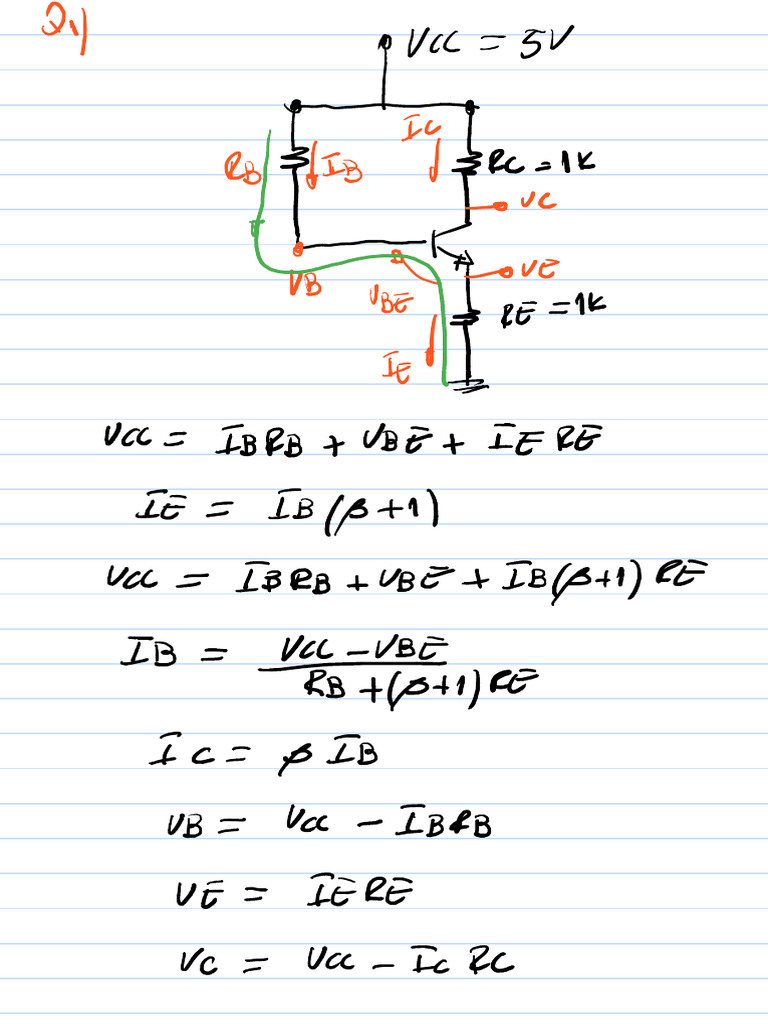 Q1)
VCC = 5V
IC
RB
IB
RC = 1K
VC
VB
VBE
VE
RE = 1K
IE
VCC = IBRB + VBE + IE RE
IE = IB (β+1)
VCC = IBRB + VBE + IB(β+1) RE
IB = VCC - VBE / RB + (β+1) RE
IC = β IB
VB = VCC - IBRB
VE = IE RE
VC = VCC - IC RC